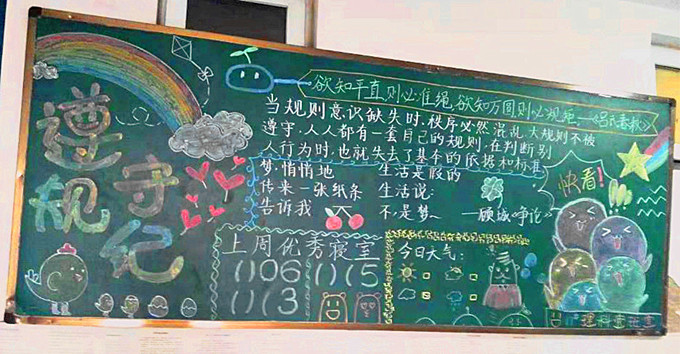 遵规
守纪
欲知平直,则必准绳,欲知方圆,则必规矩。—《吕氏春秋》
当规则意识缺失时,秩序必然混乱,大规则不被
遵守,人人都有一套自己的规则,在判断别
人行为时,也就失去了基本的依据和标准
梦,悄悄地
传来一张纸条
告诉我
生活是假的
生活说:
不是梦~
—顾城《争论》
快看!
上周优秀寝室
1106 1115
1113
今日天气: